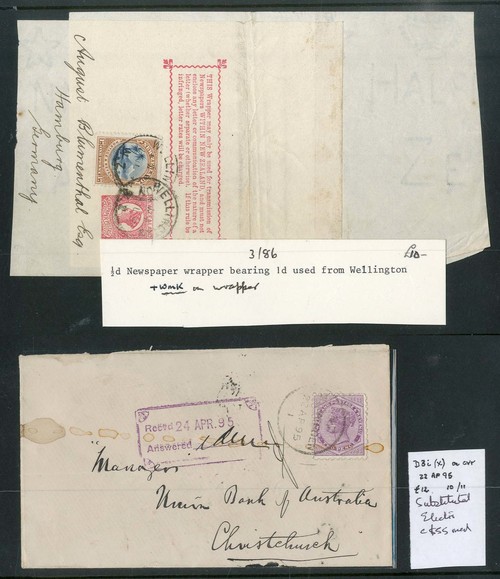 August Blumenthal Esq
Hamburg
Germany
THIS Wrapper may only be used for transmission of
Newspapers WITHIN NEW ZEALAND, and must not
enclose any letter or communication of the nature of a
letter (whether separate or otherwise). If this rule be
infringed, letter rates will be charged.
WELLINGTON
3/86 £10-
½d Newspaper wrapper bearing 1d used from Wellington
+ wmk on wrapper
Recvd 24 APR. 95
Answered
"Manager
Union Bank of Australia
Christchurch"
D3i (x) on cvr
22 AP 95
£12 10/11